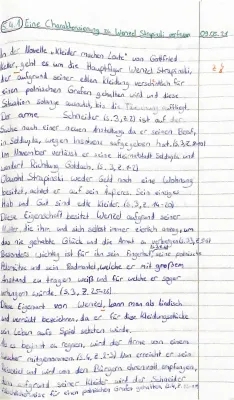 S.4.1 Eine Charakterisierung zu Wenzel Strapinski verfassen 09.05.
In der Novelle „Kleider machen Leute" von Gottfried
Keller, geht es um die Hauptfigur Wenzel Strapinski,
der aufgrund seiner edlen Kleidung versehentlich für
einen polnischen Grafen gehalten wird und diese
Situation solange ausnutzt, bis die Täuschung auffliegt.
Der arme Schneider (S.3, Z.2) ist auf der
Suche nach einer neuen Anstellung, da er seinen Beruf,
in Seldwyla, wegen Insolvenz aufgegeben hat.
Im November verlässt er seine Heimatstadt Seldwyla und
wandert Richtung Goldach. (S.3, Z.1-2)
Obwohl Strapinski weder Geld noch eine Wohnung
besitzt, achtet er auf sein Äußeres. Sein einziges
Hab und Gut sind edle Kleider.
Diese Eigenschaft besitzt Wenzel aufgrund seiner
Mutter die ihm und sich selbst immer zierlich anzog, um
das nie gehabte Glück und die Armut zu verbergen.
Besonders wichtig ist für ihn sein
Pelzmütze und sein Radmantel, welche er mit großem
Anstand zu tragen weiß und für welche er sogar
verhungern würde. (S.3, Z.25-26)
Diese Eigenart von Wenzel, kann man als kindisch
und verrückt bezeichnen, da er für die Kleidungsstücke
sein Leben aufs Spiel setzten würde.
Als es beginnt zu regnen, wird der Arme von einem
Kutscher mitgenommen. Dann erreicht er sein
und wird von den Bürgern ehrenvoll empfangen,
denn aufgrund seiner Kleider wird der Schneider
für einen polnischen Grafen gehalten